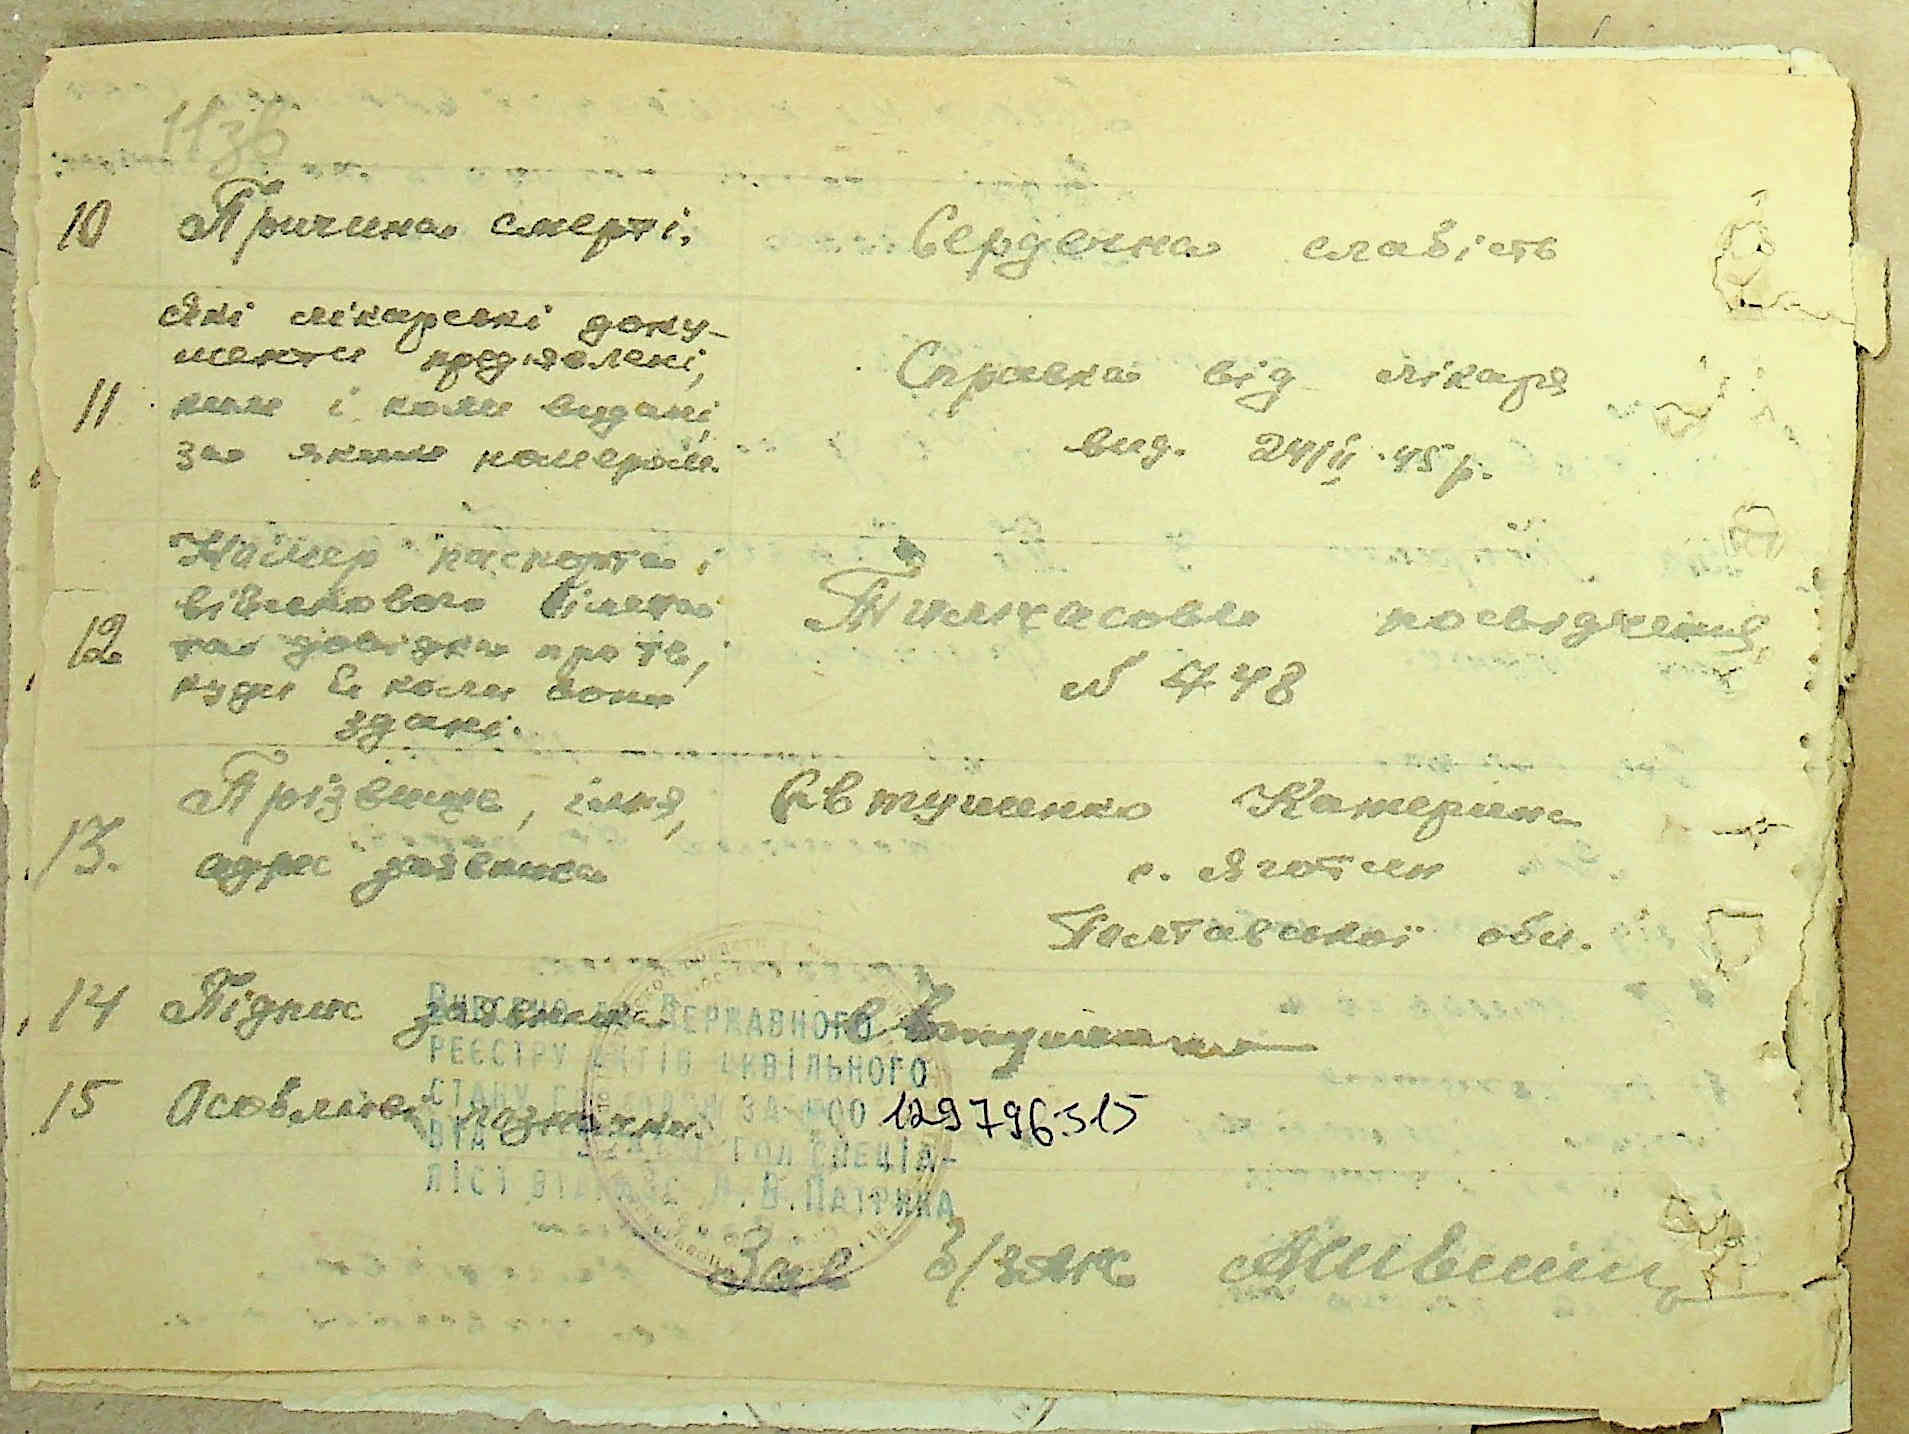 11зв
10 Причина смерті. Сердечна слабість
Які лікарські доку-
менти пред'явлені,
11 ким і коли видані,
за яким номером.
Справка від лікаря
вид. 24/ІІ 45 р.
Номер паспорта і
військового білета
12 та довідки про те,
куди й коли вони
здані.
Тимчасове посвідчення,
№ 748
13. Прізвище, ім'я,
адрес заявника
Євтушенко Катерина
с. Яготин
Полтавської обл.
14 Підпис заявника Євтушенко
15 Особливі познаки.
Внесено до Державного
реєстру актів цивільного
стану громадян за №00 129796315
гол спеціа-
ліст В.Патрика
Зав б/ЗАГС